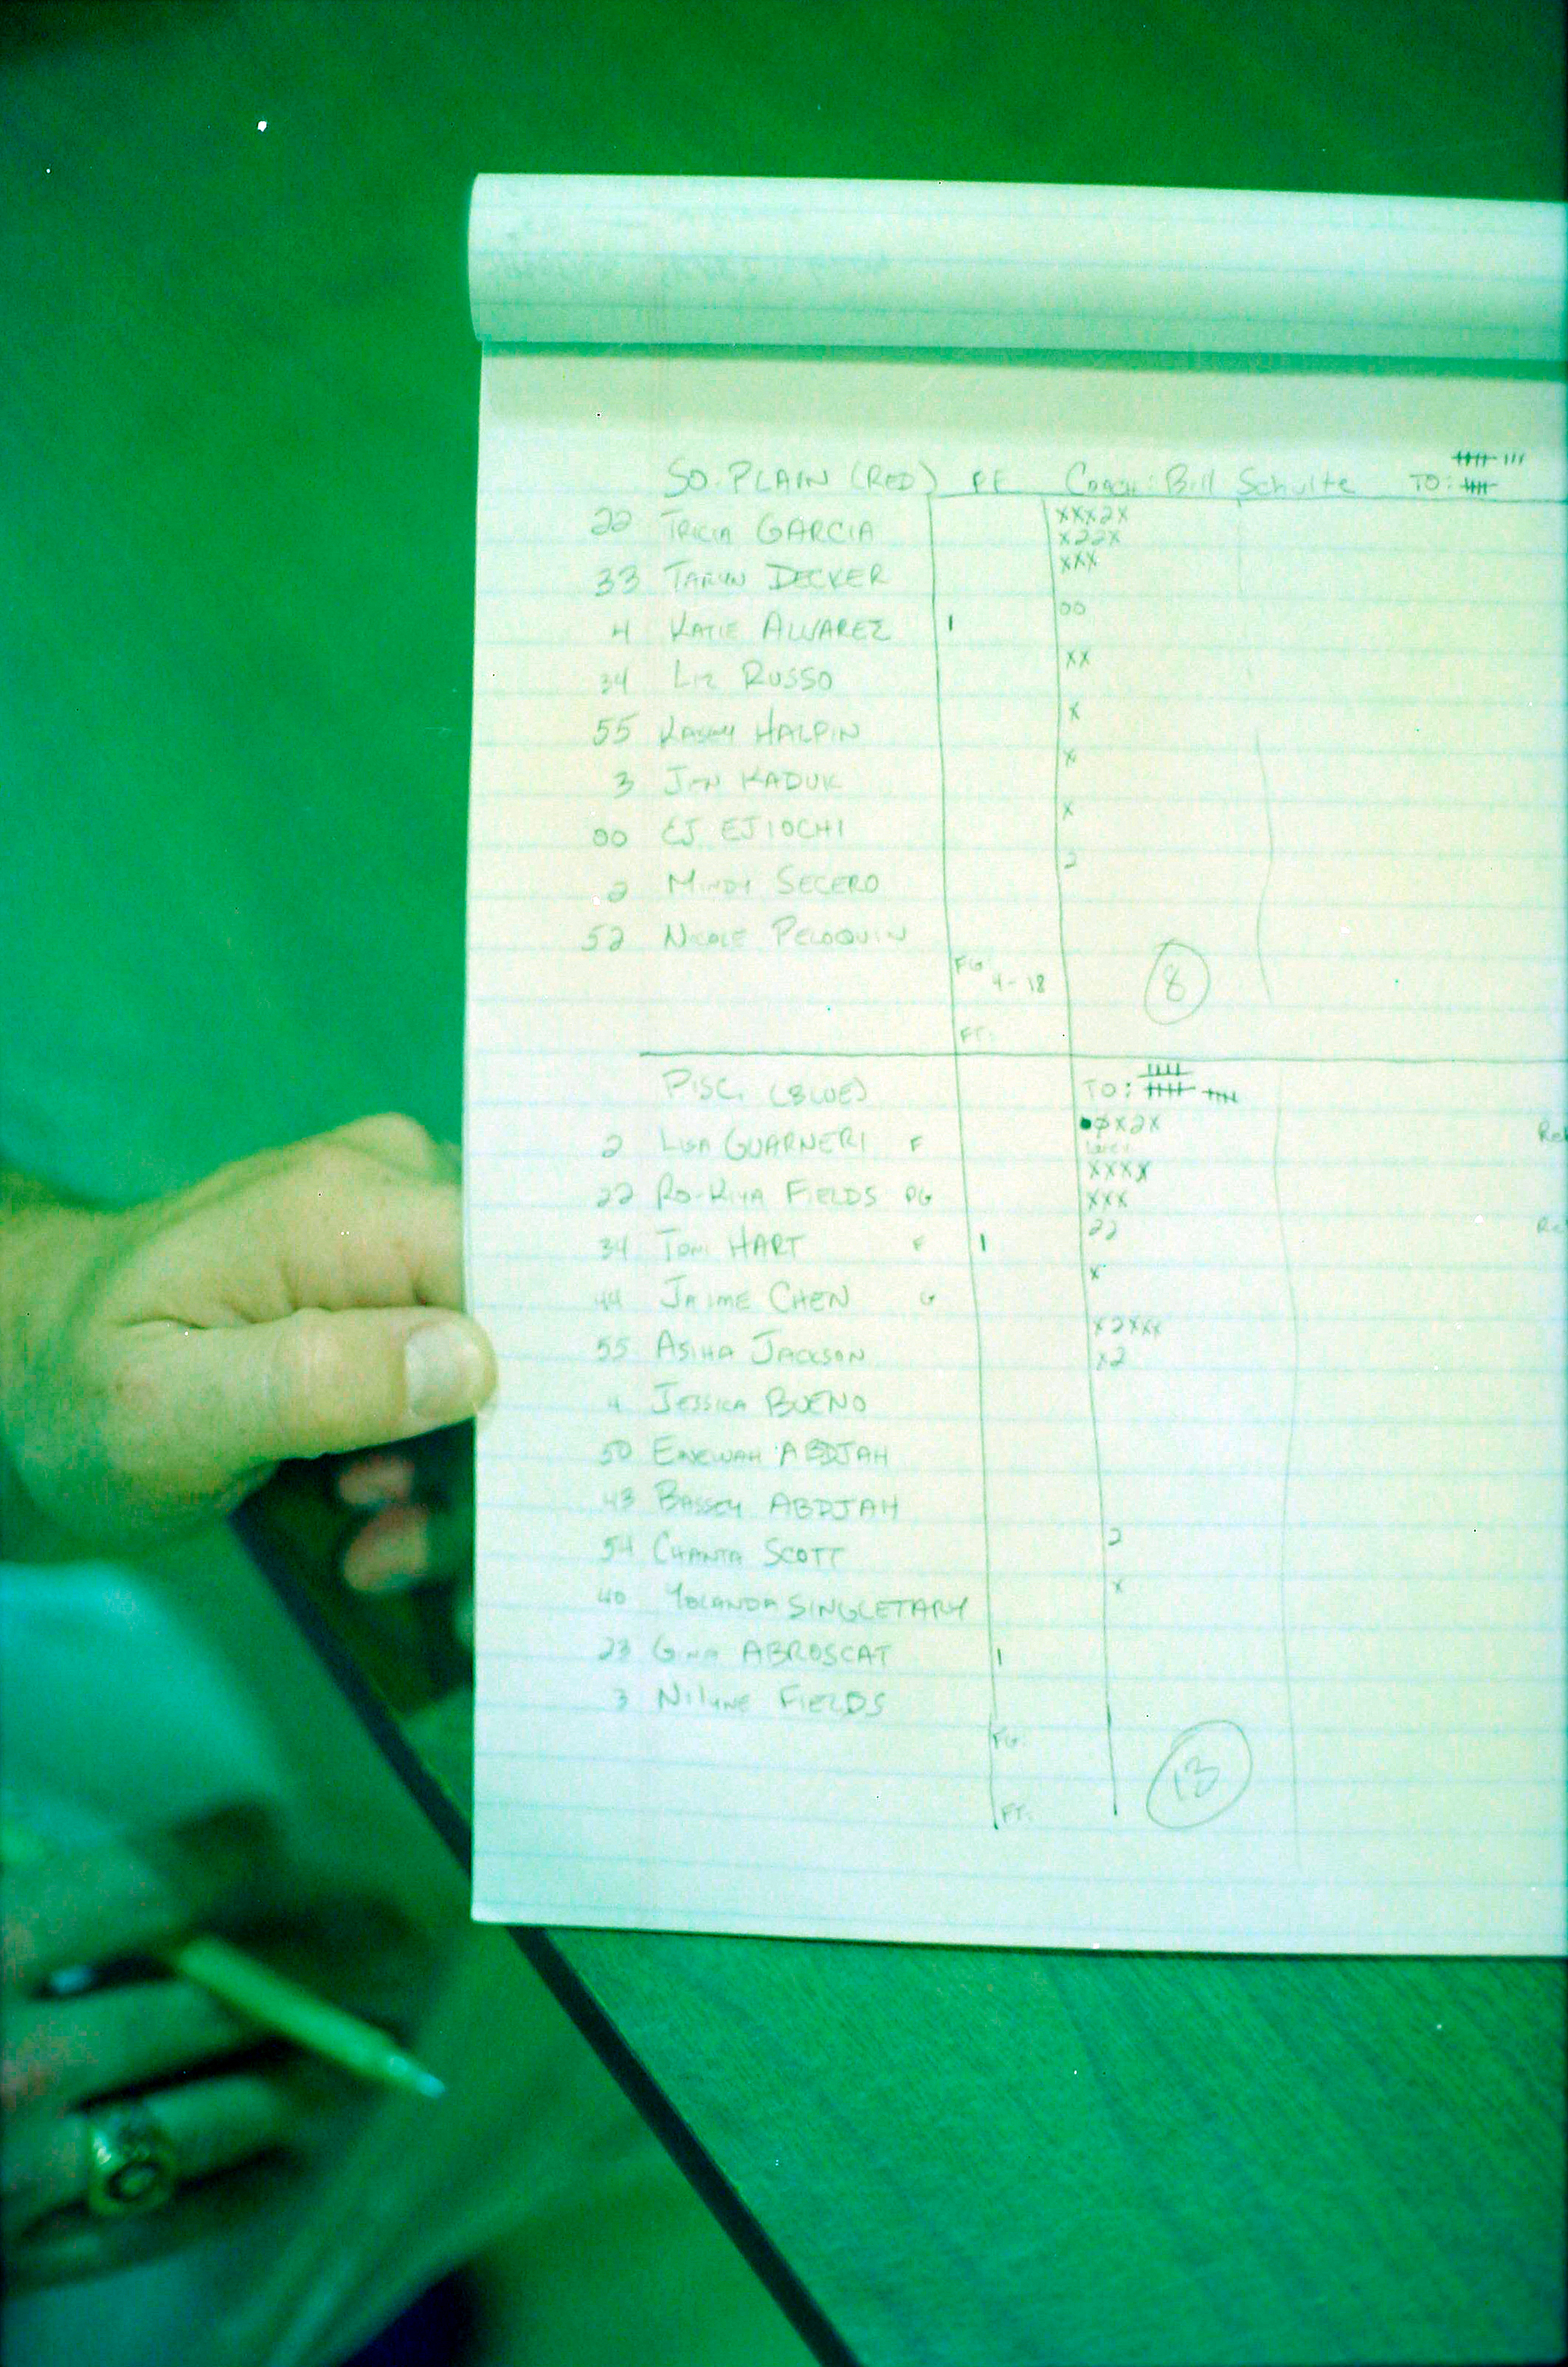 SO. PLAIN (RED) PF Coach: Bill Schulte TO:
22 TRICIA GARCIA xxx2x
x22x
33 TARYN DECKER xxx
4 KATIE ALVAREZ 1 00
34 LIZ RUSSO xx
55 KASEY HALPIN x
3 JEN KADUK x
00 EJ EJIOCHI x
2 MINDY SECERO 2
52 NICOLE PELOQUIN
FG: 4-18 8
FT:
PISC. (BLUE) TO:
2 LISA GUARNERI F x2x
22 RO-KIYA FIELDS PG xxxx
xxx
34 TONI HART F 1 22
44 JAIME CHEN G x
55 ASIHA JACKSON x2xxx
x2
4 JESSICA BUENO
50 ABDJAH
43 BASSEY ABDJAH
54 CHANTA SCOTT 2
40 YOLANDA SINGLETARY x
23 GINA ABROSCAT 1
3 NILYNE FIELDS
FG: 13
FT: